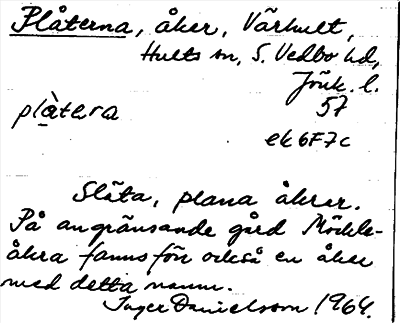 Plåterna, åker, Värhult,
Hults sn, S. Vedbo hd,
Jönk. l.
plàtera 57
ek 6F7c
Släta, plana åkrar.
På angränsande gård Möckls-
åkra fanns förr också en åker
med detta namn.
Inger Danielsson 1964.